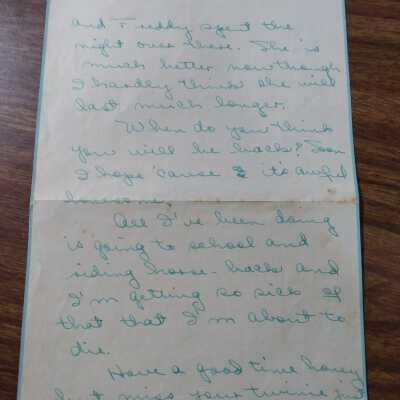 and Freddy spent the
night over there. She is
much better now though
I hardly think she will
last much longer.
When do you think
you will be back? Soon
I hope 'cause it's awful
lonesome.
All I've been doing
is going to school and
riding horse-back and
I'm getting so sick of
that that I'm about to
die.
Have a good time honey
but miss your twinie just